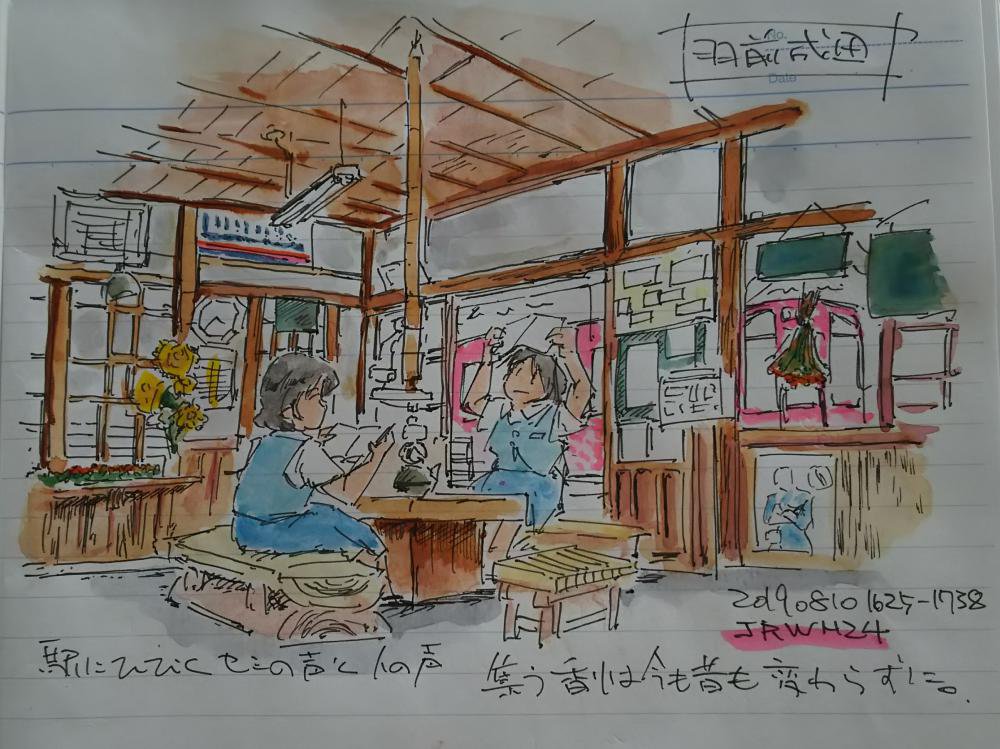 No.
Date
20190810 1625-1738
JRWH24
駅にひびくセミの声と人の声
集う香りは今も昔も変わらずに。